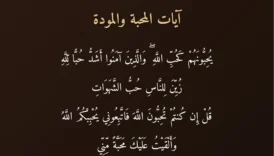 آيات المحبة والمودة
يُحِبُّونَهُمْ كَحُبِّ اللَّهِ ۖ وَالَّذِينَ آمَنُوا أَشَدُّ حُبًّا لِلَّهِ
زُيِّنَ لِلنَّاسِ حُبُّ الشَّهَوَاتِ
قُلْ إِن كُنتُمْ تُحِبُّونَ اللَّهَ فَاتَّبِعُونِي يُحْبِبْكُمُ اللَّهُ
وَأَلْقَيْتُ عَلَيْكَ مَحَبَّةً مِّنِّي